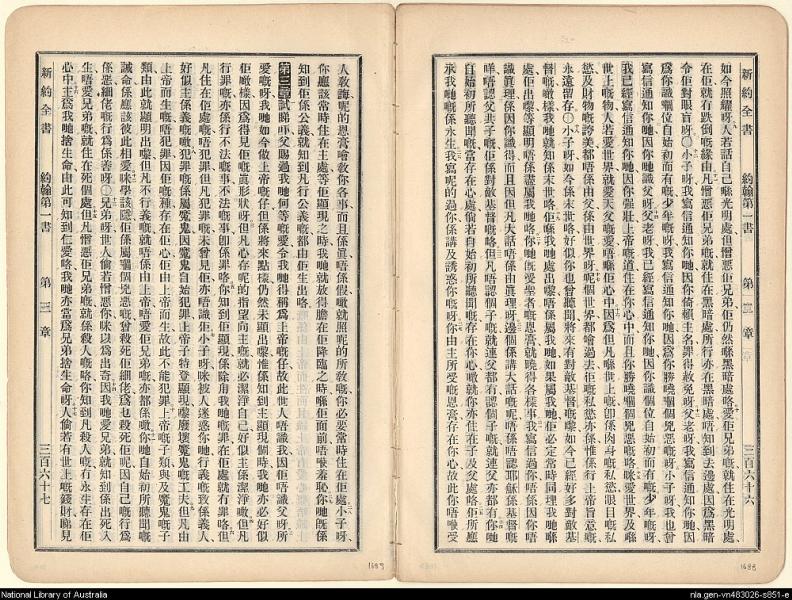 新約全書
約翰第一書
第三章
三百六十六
如今照耀呀、人若話自己喺光明處、但憎惡佢兄弟、佢仍然喺黑暗處咯、愛佢兄弟嘅、就住在光明處、
在佢就冇跌倒嘅緣由、凡憎惡佢兄弟嘅、就住在黑暗處、所行亦在黑暗處、唔知到去邊處、因爲黑暗
令佢對眼盲呀、〇小子呀、我寫信通知你哋、因你倚賴主名、罪得赦免呀、父老呀、我寫信通知你哋、因
爲你識嗰位自始初而有嘅、少年嘅呀、我寫信通知你哋、因爲你勝嘵嗰個兇惡嘅呀、小子呀、我也曾
寫信通知你哋、因你哋識父呀、父老呀、我已經寫信通知你哋、因你識個位自始初而有嘅、少年嘅呀、
我已經寫信通知你哋、因你強壯、上帝嘅道住在你心中、而且你勝嘵嗰個兇惡嘅咯、咪愛世界、及喺
世上嘅物、人若愛世界、就愛天父嘅愛、唔喺佢心中、因爲但凡喺世上嘅、卽係肉身嘅私慾、眼目嘅私
慾、及財物嘅誇美、都唔係由父、係由世界呀、呢個世界都噲過去、佢嘅私慾亦係、惟係行上帝旨意嘅、
永遠留存、〇小子呀、如今係末世咯、好似你也曾聽聞、將來有對敵基督嘅嚟、如今已經好多對敵基
督嘅噉樣、我哋就知係末世咯、佢喺我哋處出嚟、唔係屬我哋、如果屬我哋、佢必定常時同埋我哋喺
處、佢出嚟等顯明唔係盡屬我哋咯、你哋旣受聖者嘅恩膏、就曉得各樣事、我寫信過你、唔係因你唔
識眞理、係因你識得、而且因但凡大話、唔係由眞理呀、邊個係講大話嘅呢、唔係唔認耶穌係基督嘅
咩、唔認父共子嘅、係對敵基督嘅咯、但凡唔認個子嘅、就連父都冇、認個子嘅、就連父亦都有、你哋
自始初所聽聞嘅、當存在心處、倘若自始初所聽聞嘅存在你心、噉就你亦住在子及父處咯、佢所應
承我哋嘅、係永生、我寫呢的過你、係講及誘惑你嘅呀、你由主所受嘅恩膏、存在你心、故此你唔駛受
人敎誨、呢的恩膏噲敎你各事、而且係眞唔係假、噉就照呢的所敎、你必要常時住在佢處、小子呀、
你應該常時住在主處、等佢顯現之時、我哋就放得膽、在佢降臨之時、喺佢面前唔駛羞恥、你哋旣係
知到佢係公義、就知到凡行公義嘅、都由佢生出咯、
第三章試睇吓、父賜過我哋何等嘅愛、令我哋得稱爲上帝嘅仔、故此世人唔識我、因佢唔識父呀、所
愛嘅呀、我哋如今做上帝嘅仔、但係將來點樣、仍然未顯出嚟、惟係知到主顯現個時、我哋亦必好似
佢噉樣、因爲得見佢嘅眞形狀呀、但凡心存呢的指望向主嘅、就必潔淨自己、好似主係潔淨噉、但凡
行罪嘅、亦係行不法嘅事、不法嘅事卽係罪咯、你知到佢顯現、係除用我哋嘅罪、在佢處就冇罪咯、但
凡住在佢處嘅、唔犯罪、但凡犯罪嘅、未曾見佢、亦唔識佢、小子呀、咪被人迷惑你哋、行義嘅致係義人、
好似主係義嘅噉、犯罪嘅係屬魔鬼、因魔鬼自始犯罪、上帝子特登顯現嚟、廢壞魔鬼嘅工夫、但凡由
上帝而生嘅、唔犯罪、因佢嘅種存在佢心、佢由上帝而生、故此不能犯罪、上帝嘅子類與及魔鬼嘅子
類、由此就顯明出嚟、但凡不行義嘅、就唔係由上帝、唔愛佢兄弟嘅亦都係噉、你哋自始初所聽聞嘅
誡命、係應該彼此相愛、咪學該隱、佢係屬嗰個兇惡嘅、曾殺死佢細佬、爲乜殺死佢呢、因自己嘅行爲
係惡、細佬嘅行爲係善呀、〇兄弟呀、世人倘若憎惡你、咪以爲出奇、因我哋愛兄弟、就知到係出死入
生、唔愛兄弟嘅、就住在死個處、但凡憎惡佢兄弟嘅、就係殺人嘅咯、你知到凡殺人嘅、冇永生存在佢
心中、主爲我哋捨生命、由此可知到仁愛咯、我哋亦當爲兄弟捨生命呀、人倘若有世上嘅錢財、睇見
新約全書
約翰第一書
第三章
三百六十七
1688
1689
National Library of Australia
nla.gen-vn483026-s851-e